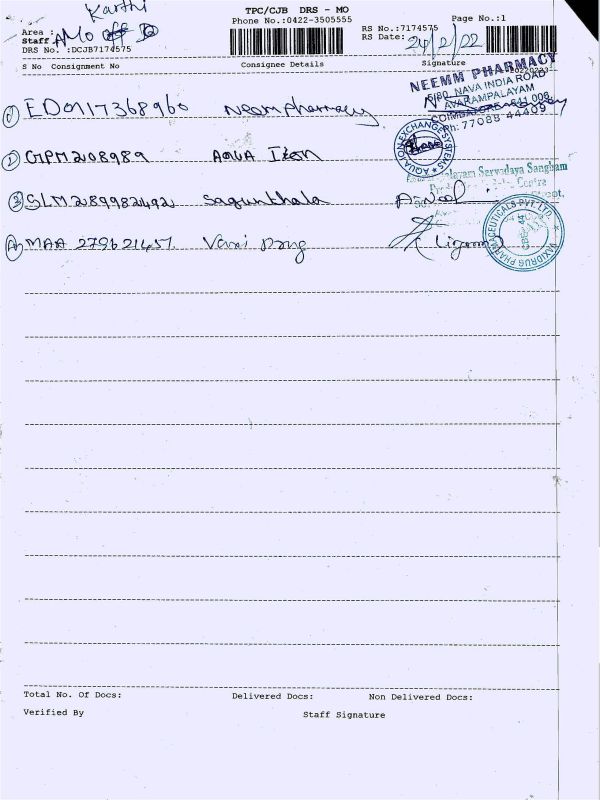 Karthi
TPC/CJB DRS - MO
Phone No.:0422-3505555
Page No.:1
Area :
Staff AMO off
DRS No. :DCJB7174575
RS No.:7174575
RS Date: 24/2/22
S No Consignment No Consignee Details Signature
NEEMM PHARMACY
5/80, NAVA INDIA ROAD
AVARAMPALAYAM
COIMBATORE - 641 006.
Ph: 77088 44409
1 ED0117368960 Neem Pharmacy
2 GPM208989 AQUA Ixon
AQUA ION EXCHANGE SYSTEMS
Servodaya Sangham
3 SLM289982492 Sagunthala
4 MAA 279621457
VAXIDRUG PHARMACEUTICALS PVT. LTD.
Total No. Of Docs: Delivered Docs: Non Delivered Docs:
Verified By Staff Signature